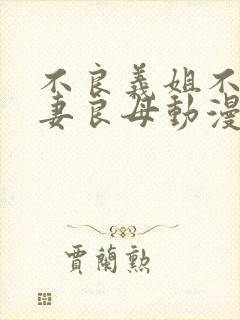 不良義姐不
妻良母動漫
賈蘭勲